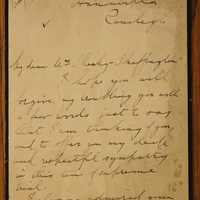 Ranelagh.
My dear Mrs Sheehy-Skeffington
I hope you will
forgive my troubling you with
a few words just to say
that I am thinking of you,
and to offer you my deep
and respectful sympathy
in this time of supreme
trial.